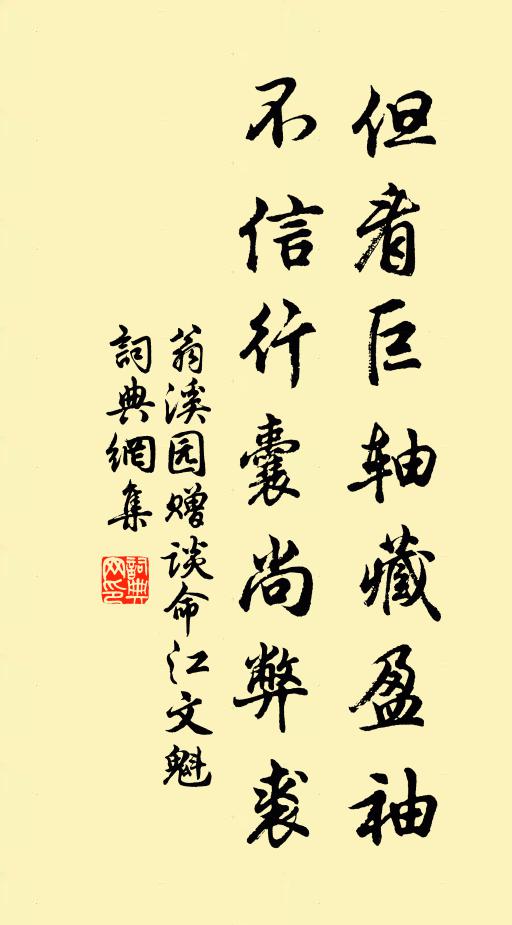 但看巨轴藏盈袖
不信行囊尚弊裘
翁溪园赠谈命江文魁
詞典網集
詞典网印